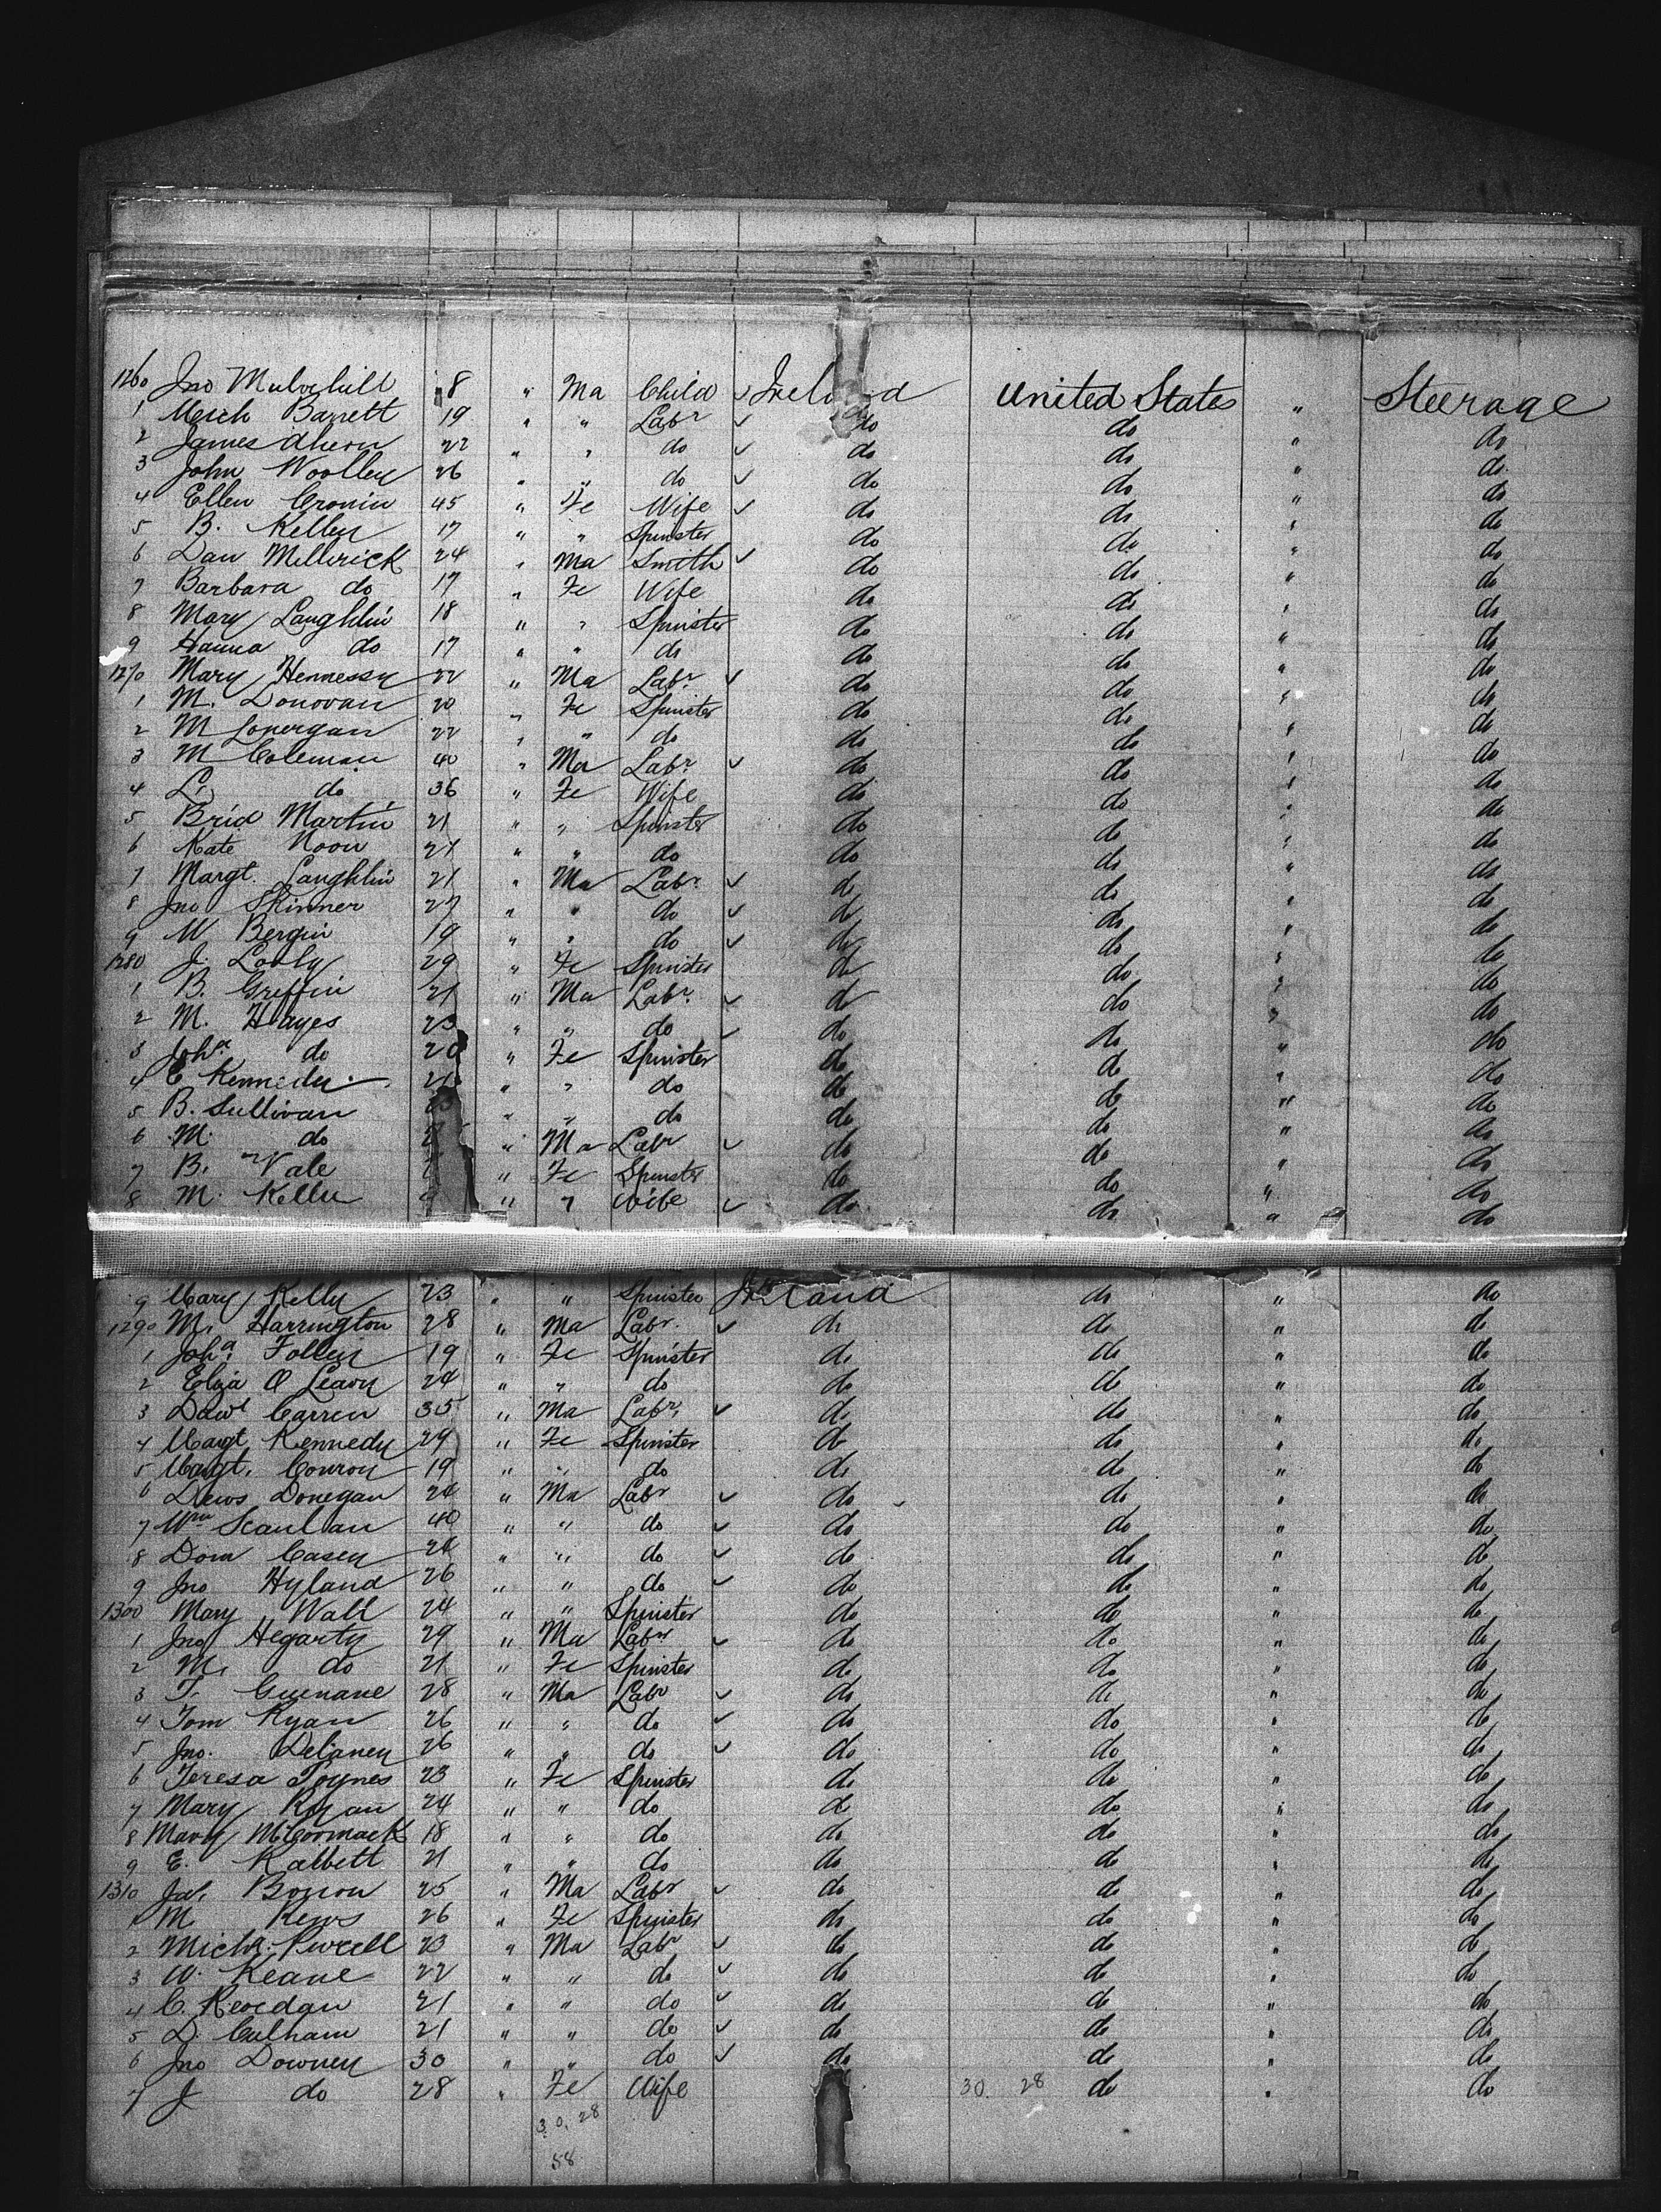 1260 Jno Mulvehill 8 " Ma Child ✓ Ireland United States " Steerage
1 Mich Barrett 19 " " Labr ✓ do do do
2 James Ahern 22 " " do ✓ do do " do
3 John Woolley 26 " " do ✓ do do " do
4 Ellen Cronin 45 " Fe Wife ✓ do do " do
5 B. Kelley 17 " " Spinster do do " do
6 Dan Millerick 24 " Ma Smith ✓ do do " do
7 Barbara do 17 " Fe Wife do do " do
8 Mary Laughlin 18 " " Spinster do do " do
9 Hanna do 17 " " do do do " do
1270 Mary Hennessy 22 " Ma Labr ✓ do do " do
1 M. Donovan 20 " Fe Spinster do do " do
2 M Lonergan 22 " " do do do " do
3 M Coleman 40 " Ma Labr ✓ do do " do
4 L. do 36 " Fe Wife do do " do
5 Brid Martin 21 " " Spinster do do " do
6 Kate Noon 21 " " do do do " do
7 Margt. Laughlin 21 " Ma Labr ✓ do do " do
8 Jno Skinner 27 " " do ✓ do do " do
9 W Bergin 19 " " do ✓ do do " do
1280 J. Looly 29 " Fe Spinster do do " do
1 B. Griffin 21 " Ma Labr ✓ do do " do
2 M. Hayes 23 " " do ✓ do do " do
3 Joha do 20 " Fe Spinster do do " do
4 E Kennedy 21 " " do do do " do
5 B. Sullivan " " do do do " do
6 M. do " Ma Labr ✓ do do " do
7 B. Vale " Fe Spinster do do " do
8 M. Kelly " " Wife ✓ do do " do
9 Mary Kelly 23 " " Spinster Ireland do " do
1290 M. Harrington 28 " Ma Labr ✓ do do " do
1 Joha Follein 19 " Fe Spinster do do " do
2 Eliza O Leary 24 " " do do do " do
3 Danl Carren 35 " Ma Labr ✓ do do " do
4 Margt Kennedy 29 " Fe Spinster do do " do
5 Margt. Conroy 19 " " do do do " do
6 Denis Donegan 24 " Ma Labr ✓ do do " do
7 Wm Scanlan 40 " " do ✓ do do " do
8 Dom Casey 24 " " do ✓ do do " do
9 Jno Hyland 26 " " do ✓ do do " do
1300 Mary Wall 24 " " Spinster do do " do
1 Jno Hegarty 29 " Ma Labr ✓ do do " do
2 M. do 21 " Fe Spinster do do " do
3 T. Guinane 28 " Ma Labr ✓ do do " do
4 Tom Ryan 26 " " do ✓ do do " do
5 Jno. Delaney 26 " " do ✓ do do " do
6 Teresa Joynes 23 " Fe Spinster do do " do
7 Mary Ryan 24 " " do do do " do
8 Mary McCormack 18 " " do do do " do
9 E. Ralbett 21 " " do do do " do
1310 Jas. 25 " Ma Labr ✓ do do " do
1 M. Kens 26 " Fe Spinster do do " do
2 Michl. Purcell 23 " Ma Labr ✓ do do " do
3 W. Keane 22 " " do ✓ do do " do
4 C. Reordan 21 " " do ✓ do do " do
5 D. Culham 21 " " do ✓ do do " do
6 Jno Downey 30 " " do ✓ do do " do
7 J do 28 " Fe Wife 30. 28 do " do
30. 28
58